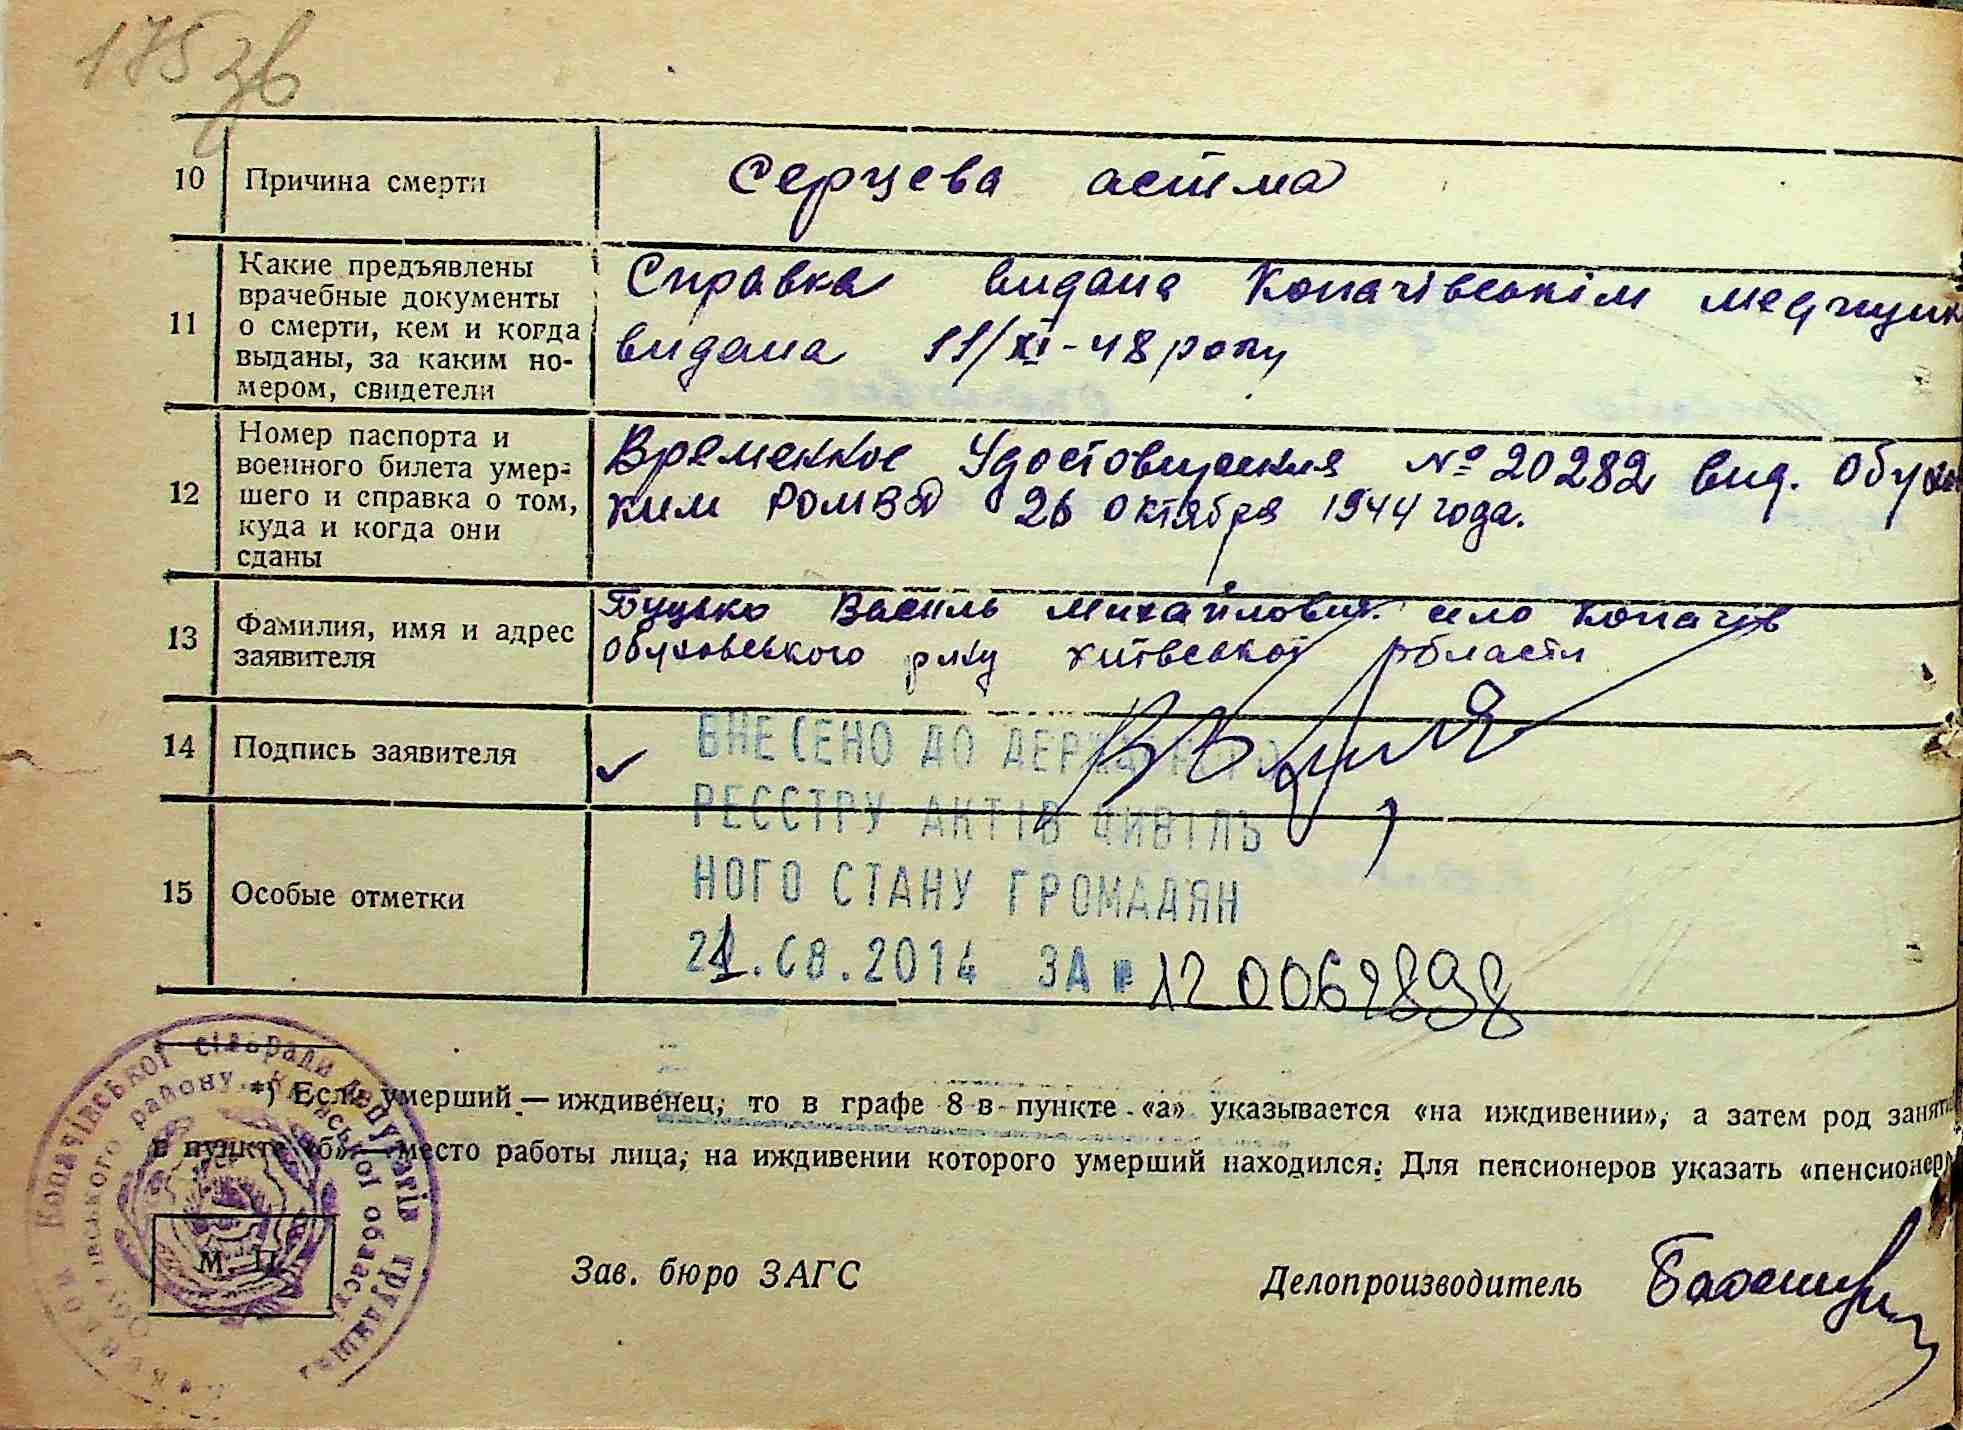 175 зв
10 Причина смерти Серцева астма
11 Какие предъявлены врачебные документы о смерти, кем и когда выданы, за каким номером, свидетели
Справка видана Копачівськім медпунк
видана 11/XI-48 року
12 Номер паспорта и военного билета умершего и справка о том, куда и когда они сданы
Временное Удостовирения № 20282 вид. Обухо
ким РОМВД 26 октября 1944 года.
13 Фамилия, имя и адрес заявителя
Буцько Василь Михайлович село Копачів
Обуховського р-ну Київської области
14 Подпись заявителя
15 Особые отметки
ВНЕСЕНО ДО ДЕРЖАВНОГО
РЕЄСТРУ АКТІВ ЦИВІЛЬ
НОГО СТАНУ ГРОМАДЯН
21.08.2014 ЗА № 12 0062898
*) Если умерший — иждивенец, то в графе 8 в пункте «а» указывается «на иждивении», а затем род заняти
в пункте «б» — место работы лица, на иждивении которого умерший находился. Для пенсионеров указать «пенсионер»
Копачівської сільради депутатів трудящих
Обухівського району Київської області
М. П.
Зав. бюро ЗАГС
Делопроизводитель